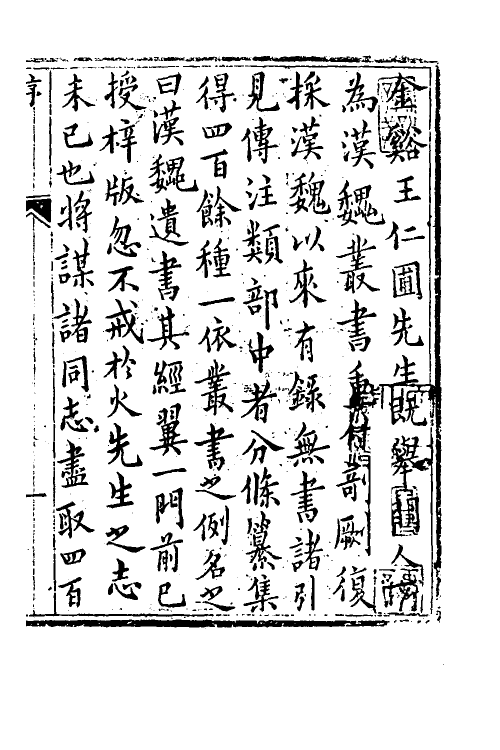 金谿王仁圃先生既舉人
為漢魏叢書重付剞劂復
採漢魏以來有錄無書諸引
見傳注類部中者分條纂集
得四百餘種一依叢書之例名之
曰漢魏遺書其經翼一門前已
授梓版忽不戒於火先生之志
未已也將謀諸同志盡取四百
序
一